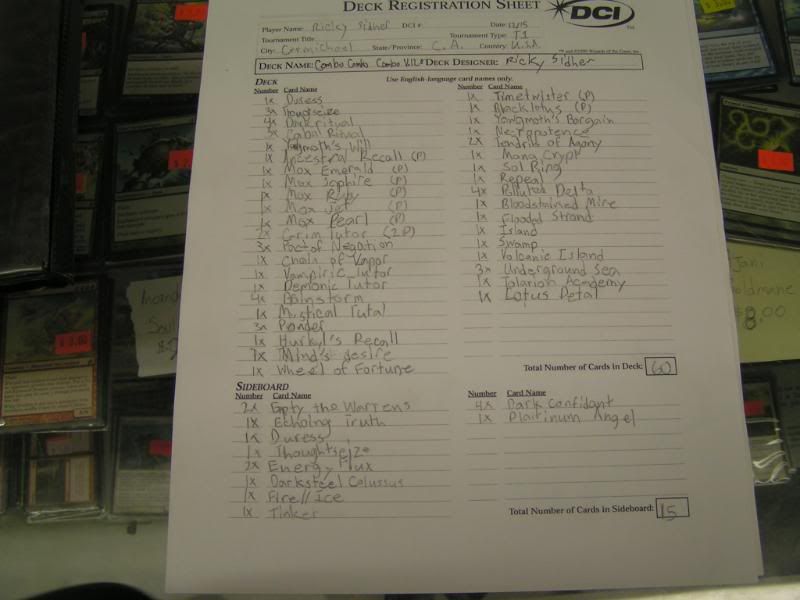 DECK REGISTRATION SHEET
DCI
Player Name: Ricky Sidher DCI #: Date: 12/15
Tournament Title: Tournament Type: T1
City: Carmichael State/Province: C.A. Country: U.SA
DECK NAME: Combo Combo Combo V.12.0 DECK DESIGNER: Ricky Sidher
DECK Use English-language card names only.
Number Card Name
1x Duress
3x Thoughtseize
4x Dark ritual
3x Cabal Ritual
1x Yawgmoth's Will
1x Ancestral Recall (P)
1x Mox Emerald (P)
1x Mox Saphire (P)
1x Mox Ruby (P)
1x Mox Jet (P)
1x Mox Pearl (P)
2x Grim Tutor (2P)
3x Pact of Negation
1x Chain of Vapor
1x Vampiric Tutor
1x Demonic Tutor
4x Brainstorm
1x Mystical Tutal
3x Ponder
1x Hurkyl's Recall
1x Mind's desire
1x Wheel of Fortune
Number Card Name
1x Timetwister (P)
1x Black lotus (P)
1x Yawgmoth's Bargain
1x Necropotence
2x Tendrils of Agony
1x Mana Crypt
1x Sol Ring
1x Repeal
4x Polluted Delta
1x Bloodstained Mire
1x Flooded Strand
1x Island
1x Swamp
1x Volcanic Island
3x Underground Sea
1x Tolarian Academy
1x Lotus Petal
Total Number of Cards in Deck: 60
SIDEBOARD
Number Card Name
2x Empty the Warrens
1x Echoing Truth
1x Duress
1x Thoughtseize
2x Energy Flux
1x Darksteel Colussus
1x Fire//Ice
1x Tinker
Number Card Name
4x Dark Confidant
1x Platinum Angel
Total Number of Cards in Sideboard: 15